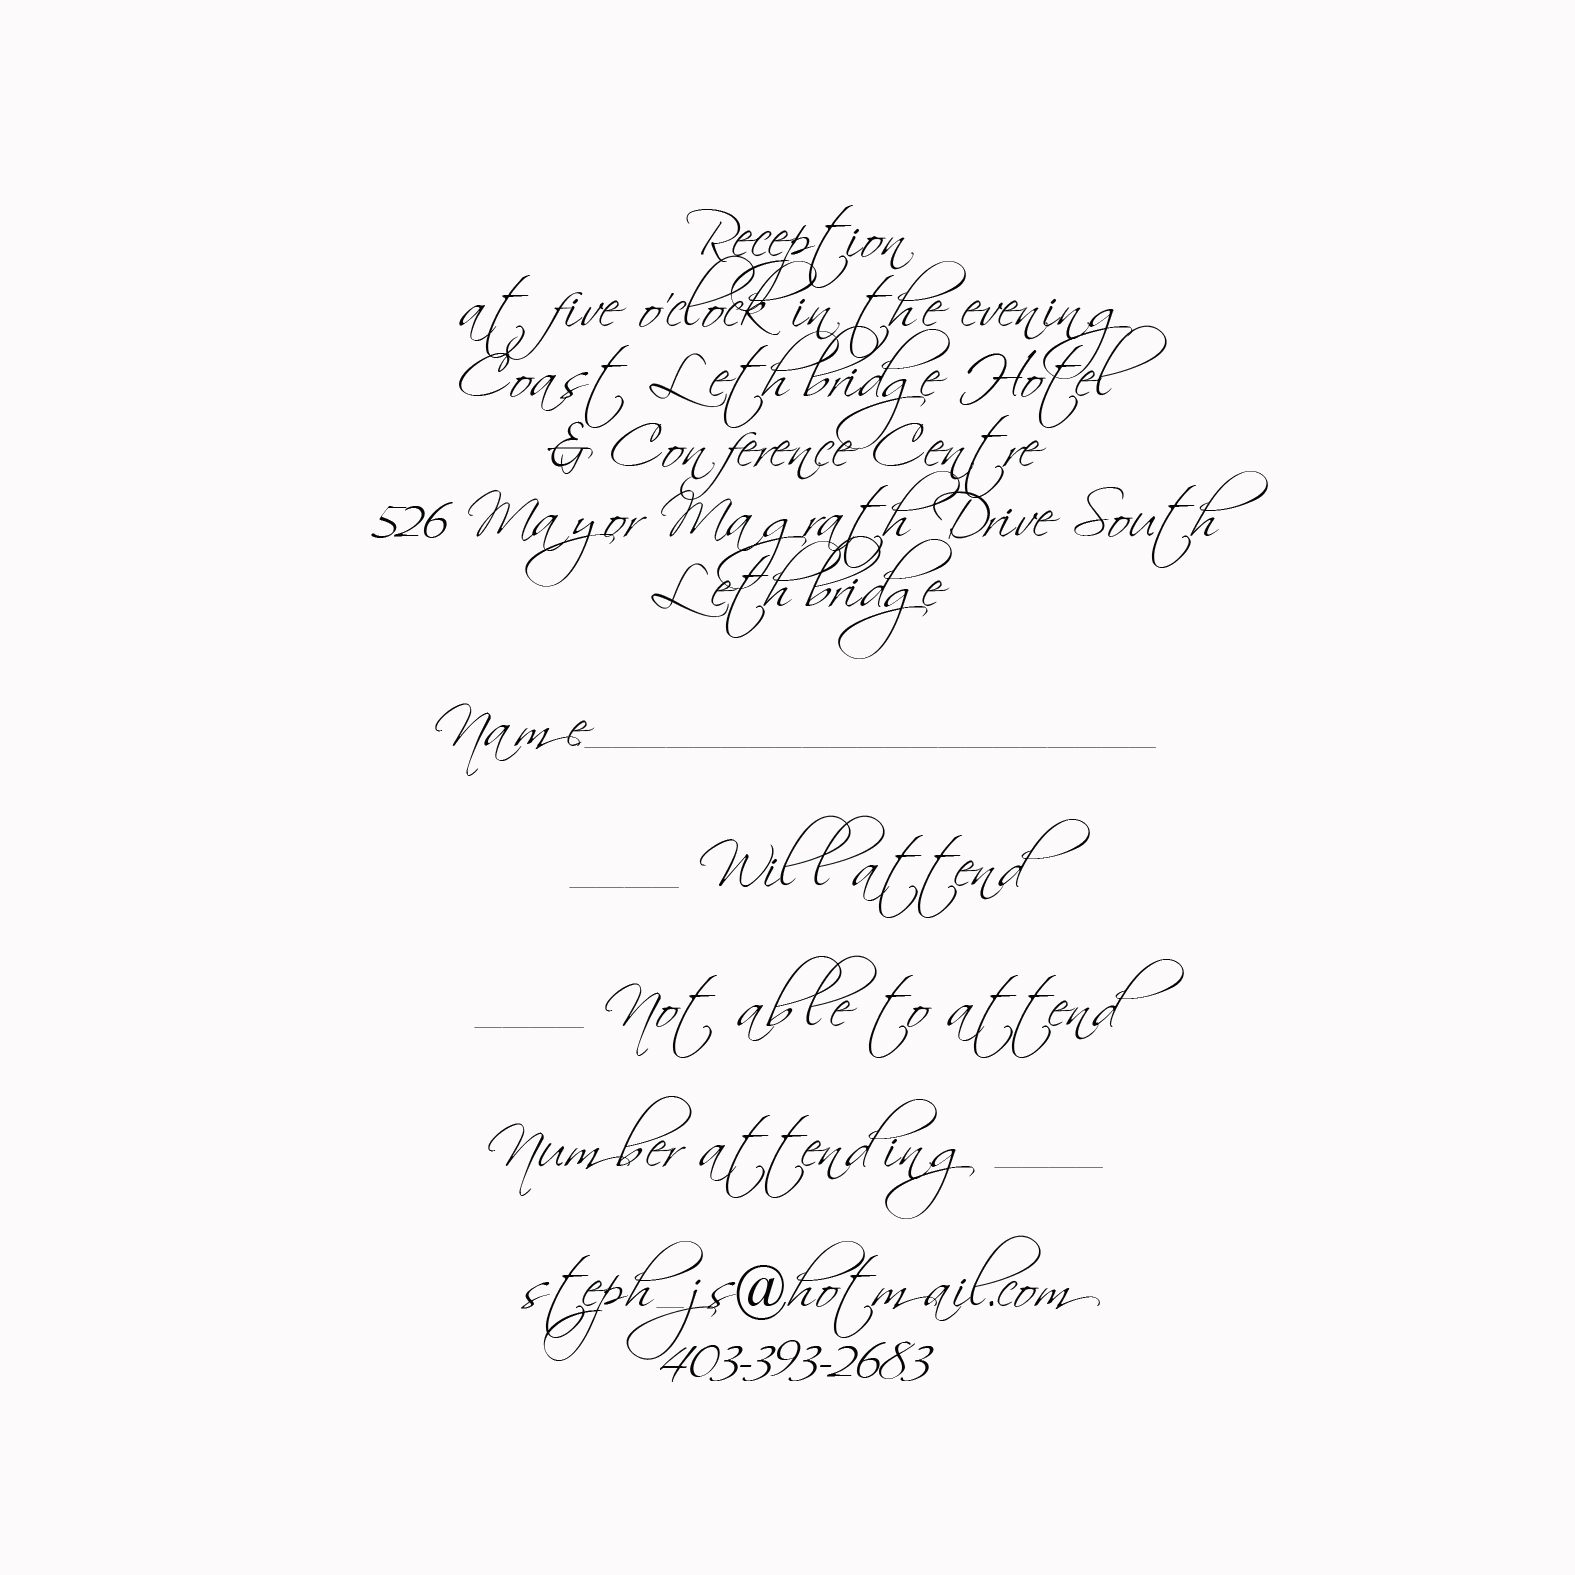 Reception
at five o'clock in the evening
Coast Lethbridge Hotel
& Conference Centre
526 Mayor Magrath Drive South
Lethbridge
Name_____________________
____ Will attend
____ Not able to attend
Number attending ____
steph_js@hotmail.com
403-393-2683